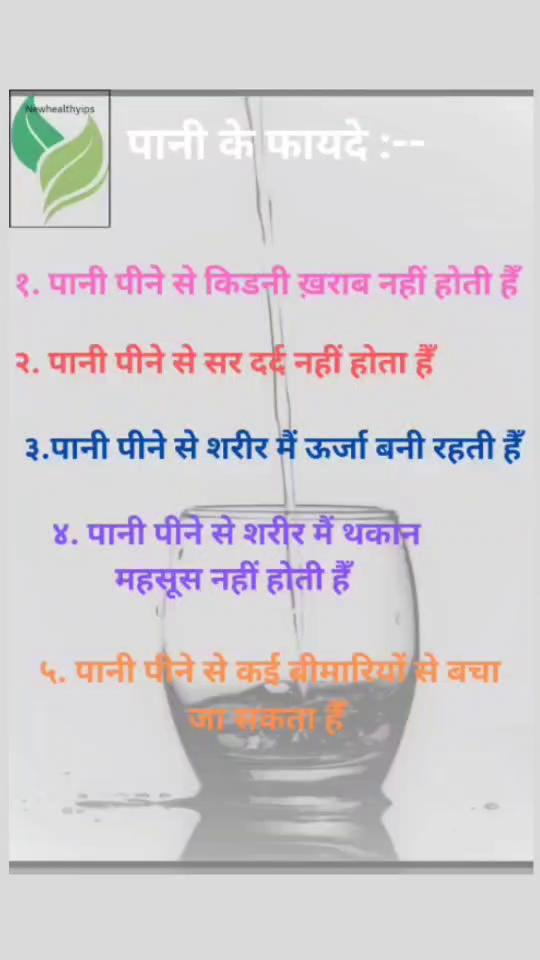 Newhealthyips
पानी के फायदे :--
१. पानी पीने से किडनी ख़राब नहीं होती हैँ
२. पानी पीने से सर दर्द नहीं होता हैँ
३.पानी पीने से शरीर मैं ऊर्जा बनी रहती हैँ
४. पानी पीने से शरीर मैं थकान
महसूस नहीं होती हैँ
५. पानी पीने से कई बीमारियों से बचा
जा सकता हैँ